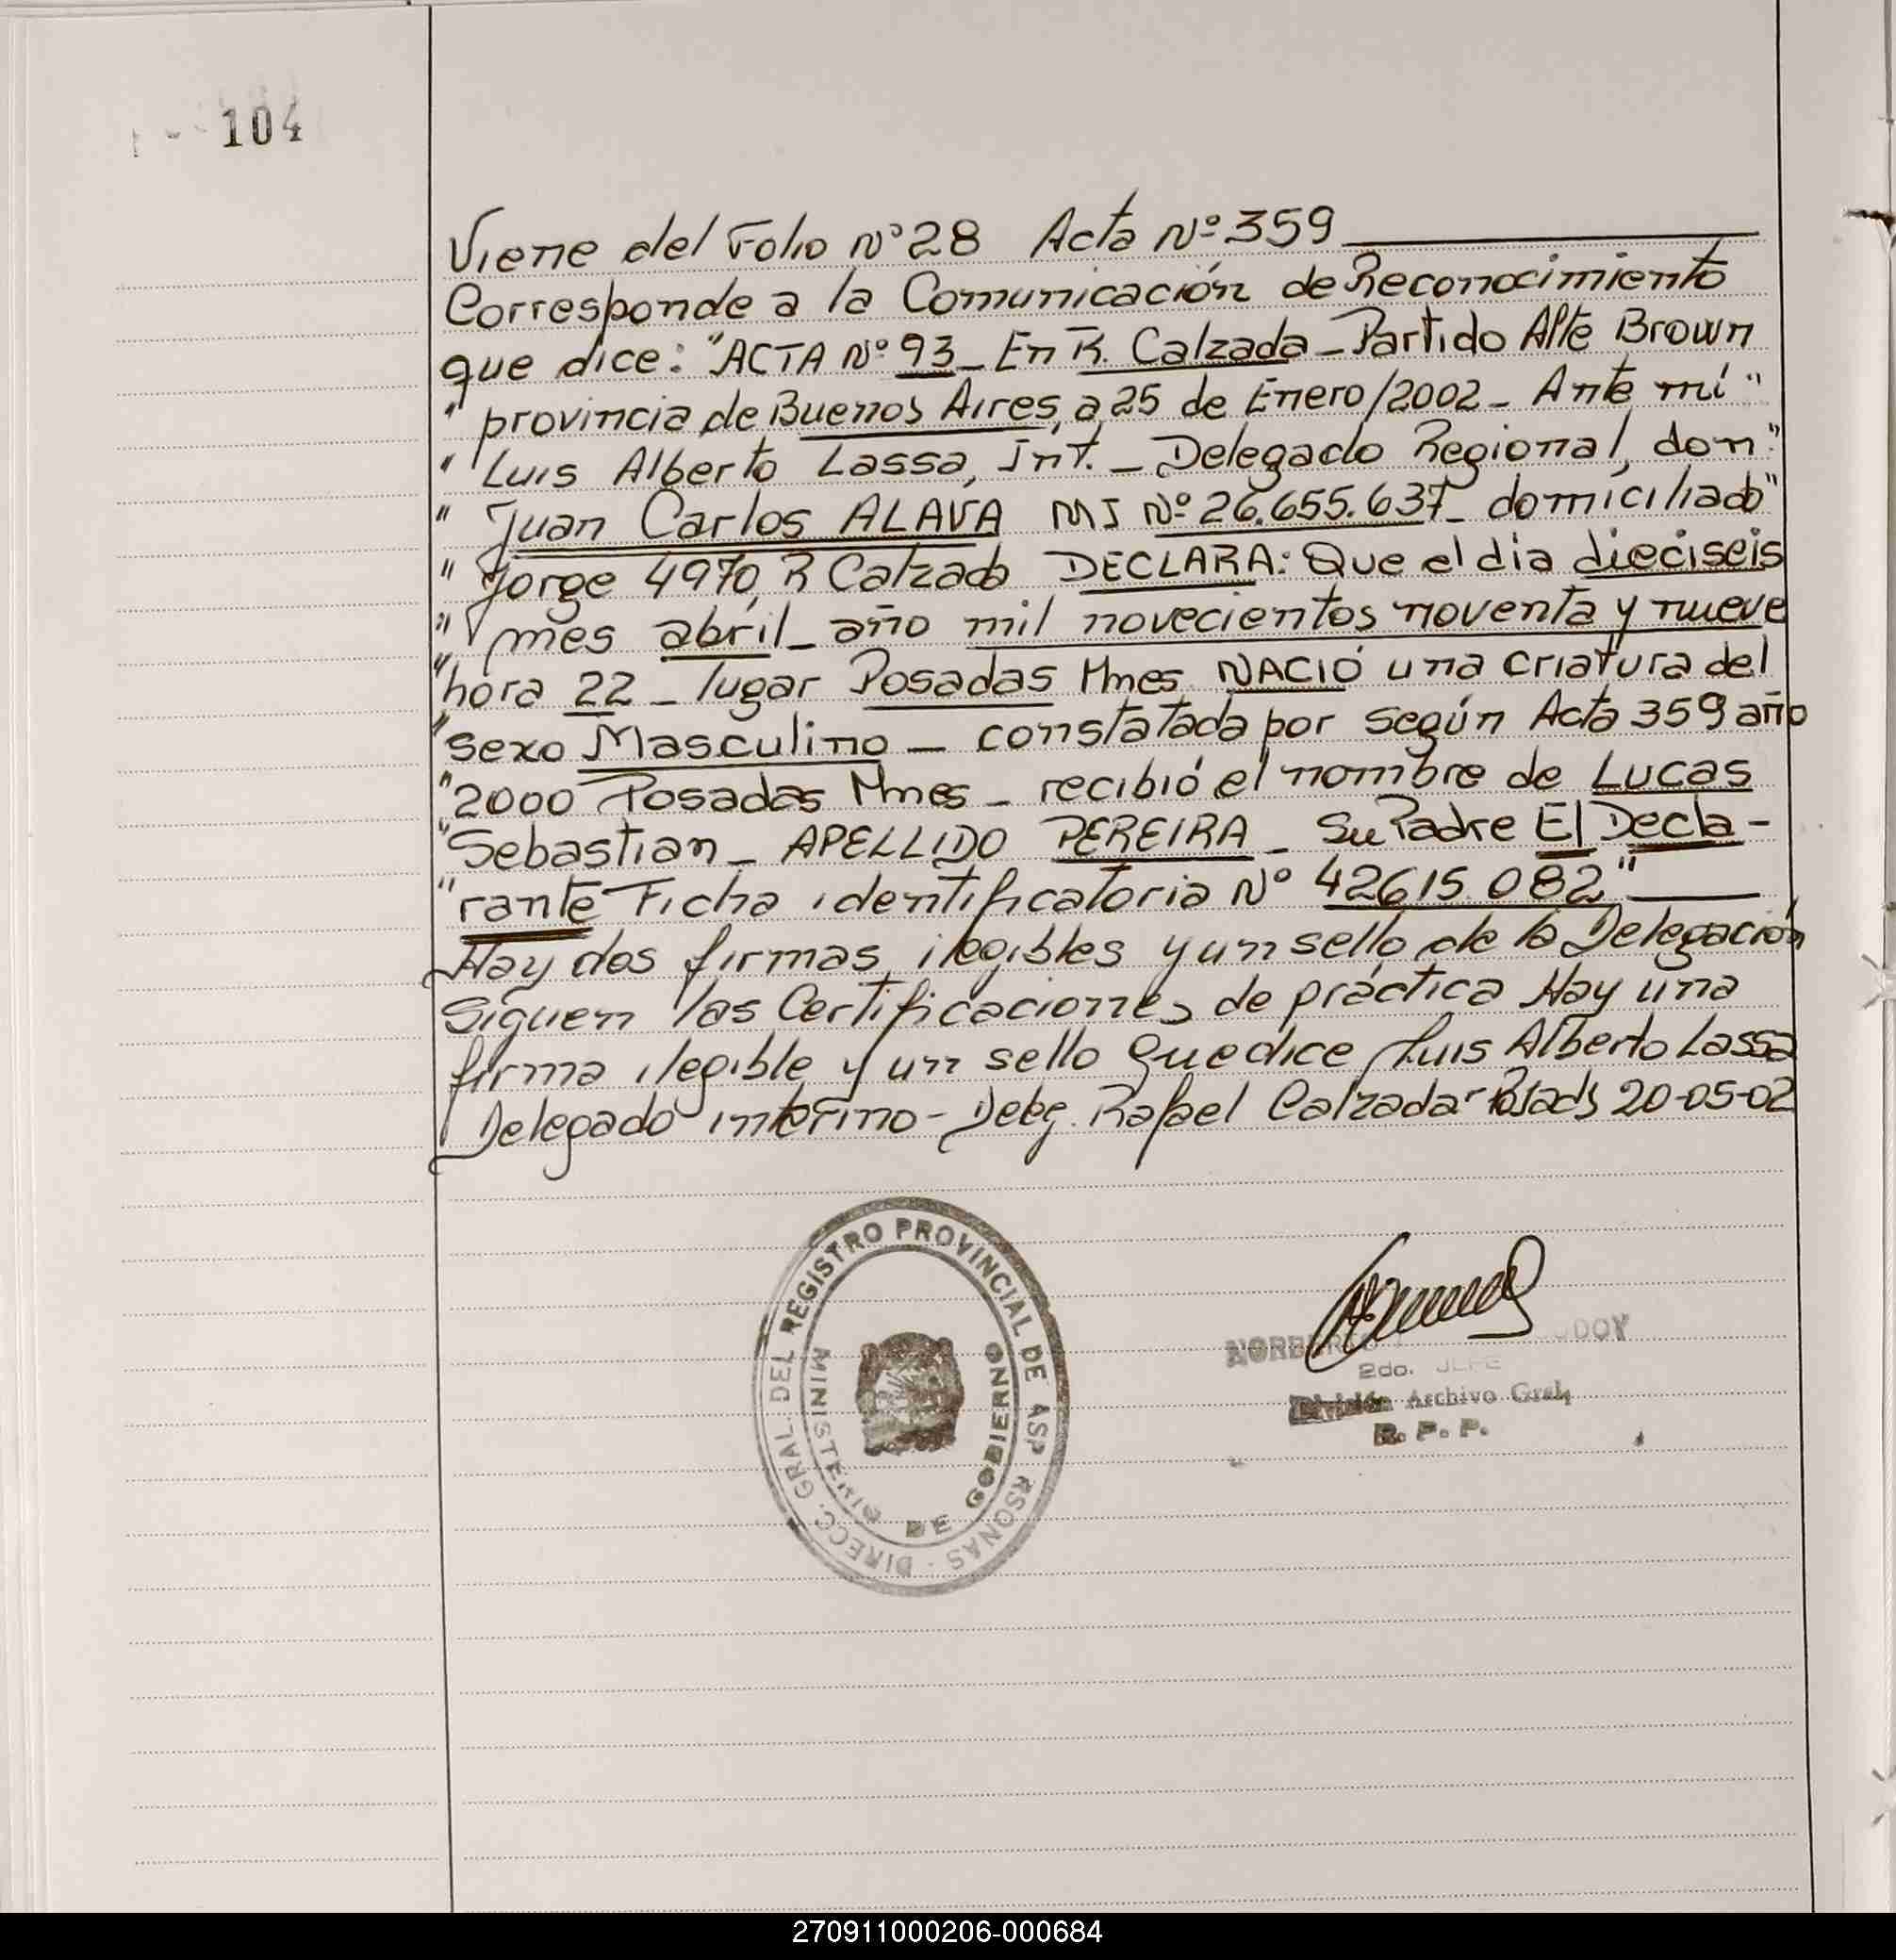 104
Viene del Folio Nº 28 Acta Nº 359
Corresponde a la Comunicación de Reconocimiento
que dice: "ACTA Nº 93 _ En R. Calzada _ Partido Alte Brown
" provincia de Buenos Aires, a 25 de Enero/2002 _ Ante mí "
" Luis Alberto Lassa, Int. _ Delegado Regional, don "
" Juan Carlos ALAVA MI Nº 26.655.637 _ domiciliado "
" Jorge 4970, R Calzada DECLARA: Que el dia dieciseis
" mes abril _ año mil novecientos noventa y nueve
" hora 22 _ lugar Posadas Mnes NACIÓ una criatura del
" sexo Masculino _ constatada por según Acta 359 año
" 2000 Posadas Mnes _ recibió el nombre de Lucas
" Sebastian _ APELLIDO PEREIRA _ Su Padre El Decla-
" rante Ficha identificatoria Nº 42615.082"
Hay dos firmas ilegibles y un sello de la Delegación
Siguen las Certificaciones de práctica Hay una
firma ilegible y un sello que dice Luis Alberto Lassa
Delegado interino - Deleg. Rafael Calzada - Posads 20-05-02
DIRECC. GRAL. DEL REGISTRO PROVINCIAL DE
MINISTERIO DE GOBIERNO
2do. JEFE
División Archivo Gral.
R. P. P.
270911000206-000684